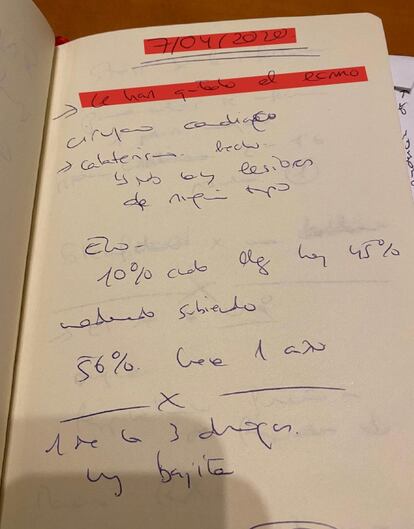 7/04/2020
→ Le han quitado el ecmo
cirujano cardiaco
→ cateterismo hecho
y no hay lesiones
de ningún tipo
Eco
10% cuando llegó hoy 45%
moderado subiendo
56%. hace 1 año
X
1 de las 3 drogas.
muy bajita